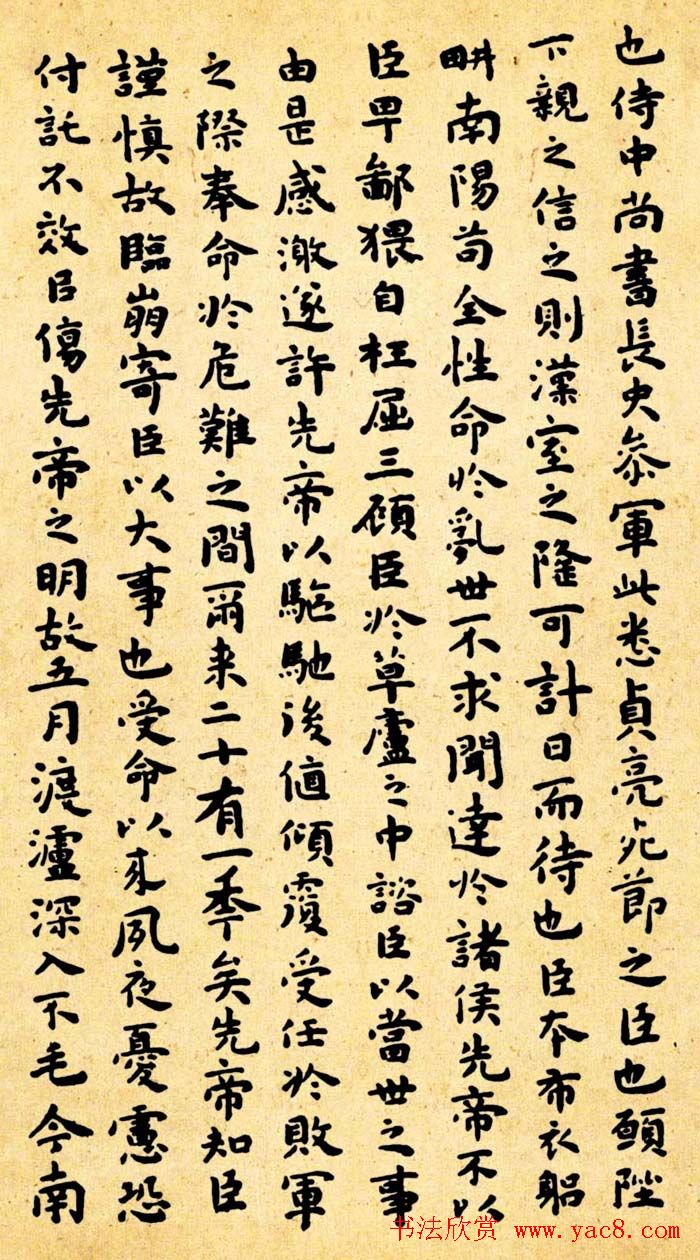 也侍中尚書長史叅軍此悉貞亮死節之臣也願陛
下親之信之則漢室之隆可計日而待也臣本布衣躬
畊南陽苟全性命於亂世不求聞達於諸侯先帝不以
臣卑鄙猥自枉屈三顧臣於草廬之中諮臣以當世之事
由是感激遂許先帝以驅馳後值傾覆受任於敗軍
之際奉命於危難之間爾来二十有一季矣先帝知臣
謹慎故臨崩寄臣以大事也受命以来夙夜憂慮恐
付託不效以傷先帝之明故五月渡瀘深入不毛今南
书法欣赏 www.yac8.com